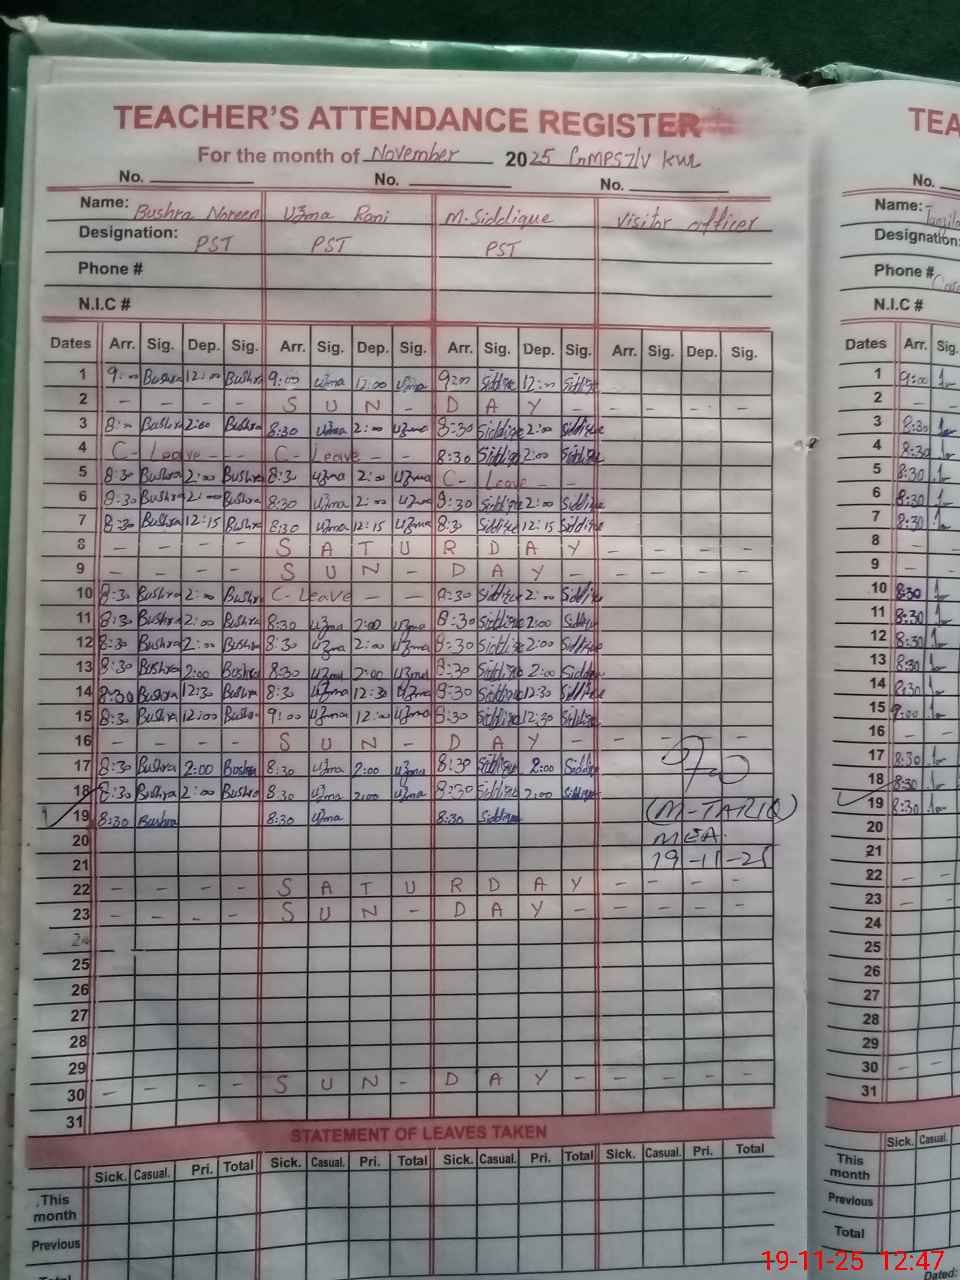 TEACHER'S ATTENDANCE REGISTER
For the month of November 2025
No. No. No.
Name: Bushra Noreen Uzma Rani M. Siddique Visitor officer
Designation: PST PST PST
Phone #
N.I.C #
Dates Arr. Sig. Dep. Sig. Arr. Sig. Dep. Sig. Arr. Sig. Dep. Sig. Arr. Sig. Dep. Sig.
1 9:00 Bushra 12:00 Bushra 9:00 Uzma 12:00 Uzma 9:00 Siddique 12:00 Siddique
2 - - - - S U N - D A Y - - - - -
3 8:30 Bushra 2:00 Bushra 8:30 Uzma 2:00 Uzma 8:30 Siddique 2:00 Siddique
4 C- Leave - - C- Leave - - 8:30 Siddique 2:00 Siddique
5 8:30 Bushra 2:00 Bushra 8:30 Uzma 2:00 Uzma C- Leave - -
6 8:30 Bushra 2:00 Bushra 8:30 Uzma 2:00 Uzma 8:30 Siddique 2:00 Siddique
7 8:30 Bushra 12:15 Bushra 8:30 Uzma 12:15 Uzma 8:30 Siddique 12:15 Siddique
8 - - - - S A T U R D A Y - - - -
9 - - - - S U N - D A Y - - - - -
10 8:30 Bushra 2:00 Bushra C- Leave - - 8:30 Siddique 2:00 Siddique
11 8:30 Bushra 2:00 Bushra 8:30 Uzma 2:00 Uzma 8:30 Siddique 2:00 Siddique
12 8:30 Bushra 2:00 Bushra 8:30 Uzma 2:00 Uzma 8:30 Siddique 2:00 Siddique
13 8:30 Bushra 2:00 Bushra 8:30 Uzma 2:00 Uzma 8:30 Siddique 2:00 Siddique
14 8:30 Bushra 12:30 Bushra 8:30 Uzma 12:30 Uzma 8:30 Siddique 12:30 Siddique
15 8:30 Bushra 12:00 Bushra 9:00 Uzma 12:00 Uzma 8:30 Siddique 12:30 Siddique
16 - - - - S U N - D A Y - - - - -
17 8:30 Bushra 2:00 Bushra 8:30 Uzma 2:00 Uzma 8:30 Siddique 2:00 Siddique
18 8:30 Bushra 2:00 Bushra 8:30 Uzma 2:00 Uzma 8:30 Siddique 2:00 Siddique (M-TARIQ)
19 8:30 Bushra 8:30 Uzma 8:30 Siddique
20 MEA
21 19-11-25
22 - - - - S A T U R D A Y - - - -
23 - - - - S U N - D A Y - - - - -
24
25
26
27
28
29
30 - - - - S U N - D A Y - - - - -
31
STATEMENT OF LEAVES TAKEN
Sick. Casual. Pri. Total Sick. Casual. Pri. Total Sick. Casual. Pri. Total Sick. Casual. Pri. Total
This month
Previous
Total
TEA
No.
Name:
Designation:
Phone #
N.I.C #
Dates Arr. Sig.
1 9:00
2 - -
3 8:30
4 8:30
5 8:30
6 8:30
7 8:30
8 - -
9 - -
10 8:30
11 8:30
12 8:30
13 8:30
14 8:30
15 9:00
16 - -
17 8:30
18 8:30
19 8:30
20
21
22 - -
23 - -
24
25
26
27
28
29
30 - -
31
Sick. Casual.
This month
Previous
Total
Dated:
19-11-25 12:47